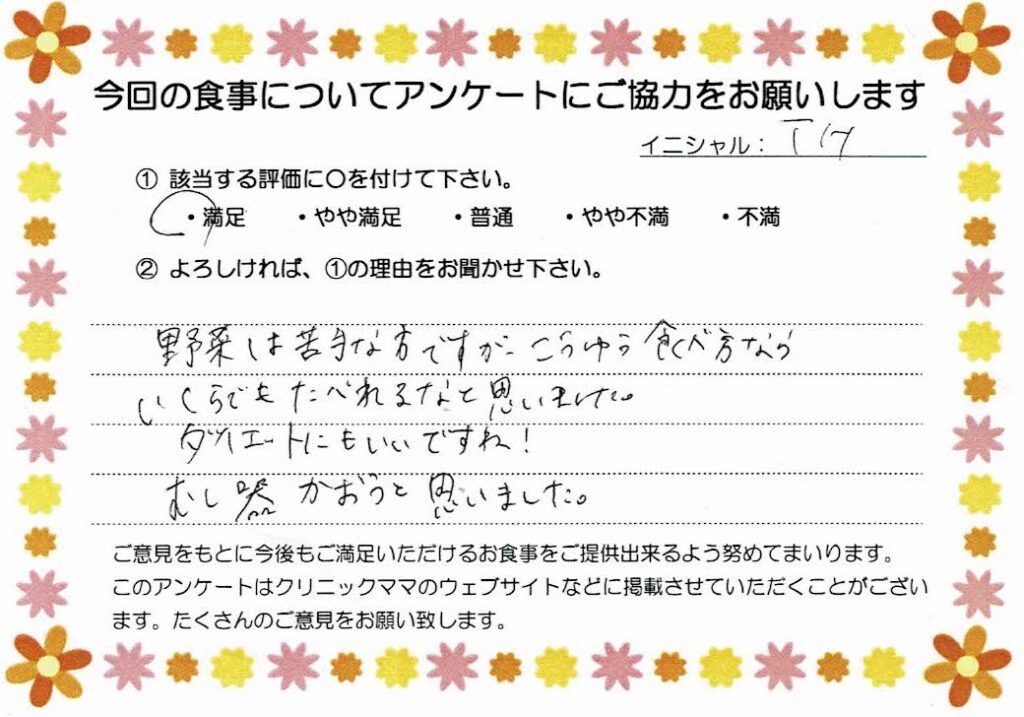 今回の食事についてアンケートにご協力をお願いします
イニシャル：
① 該当する評価に〇を付けて下さい。
・満足 ・やや満足 ・普通 ・やや不満 ・不満
② よろしければ、①の理由をお聞かせ下さい。
野菜は苦手な方ですが、こうゆう食べ方なら
いくらでもたべれるなと思いました。
ダイエットにもいいですね！
むし器かおうと思いました。
ご意見をもとに今後もご満足いただけるお食事をご提供出来るよう努めてまいります。
このアンケートはクリニックママのウェブサイトなどに掲載させていただくことがござい
ます。たくさんのご意見をお願い致します。